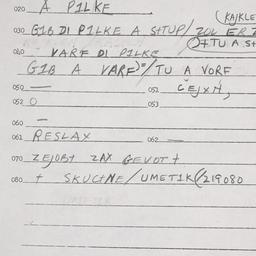 020 A PILKE
(KAJKLE
030 GIB DI PILKE A SHTUP/ ZOL ER
040 VARF DI PILKE TU A SH
GIB A VARF)=/ TU A VORF
050 — 051 ČEJXN,
052 O 053
060 —
061 RESLAX 062 —
070 ZEJOBT ZAX GEVOT +
080 + SKUCHNE/UMETIK(/219080